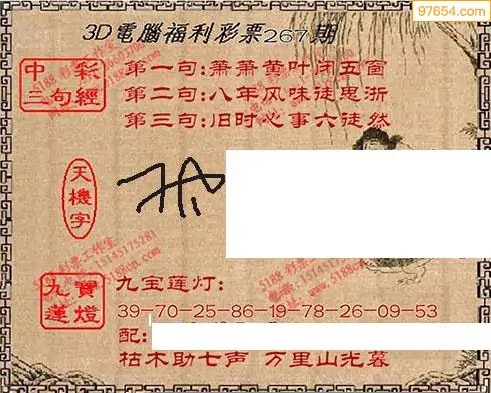 97654.com
3D電腦福利彩票267期
中彩
三句經
第一句:萧萧黄叶闭五窗
第二句:八年风味徒思浙
第三句:旧时心事六徒然
天機字
5188 彩票工作室
15145175281
九寶
蓮燈
九宝莲灯:
39-70-25-86-19-78-26-09-53
配:
枯木助七声 万里山光暮